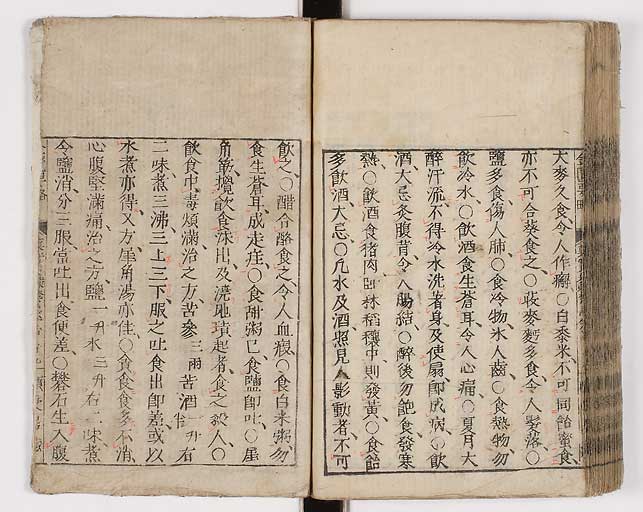 金匱要略
大麥久食令人作癬○白黍米不可同飴蜜食
亦不可合葵食之○荍麥麪多食令人髮落○
鹽多食傷人肺○食冷物氷人齒○食熱物勿
飲冷水○飲酒食生蒼耳令人心痛○夏月大
醉汗流不得冷水洗著身及使扇即成病○飲
酒大忌灸腹背令人腸結○醉後勿飽食發寒
熱○飲酒食猪肉臥秫稻穰中則發黃○食飴
多飲酒大忌○凡水及酒照見人影動者不可
飲之○醋合酪食之令人血瘕○食白米粥勿
食生蒼耳成走疰○食甜粥已食鹽即吐○犀
角筯攪飲食沫出及澆地墳起者食之殺人○
飲食中毒煩滿治之方苦參三兩苦酒一升
右二味煮三沸三上三下服之吐食出即差或以
水煮亦得又方犀角湯亦佳○貪食食多不消
心腹堅滿痛治之方鹽一升水三升右二味煮
令鹽消分三服當吐出食便差○礬石生入腹